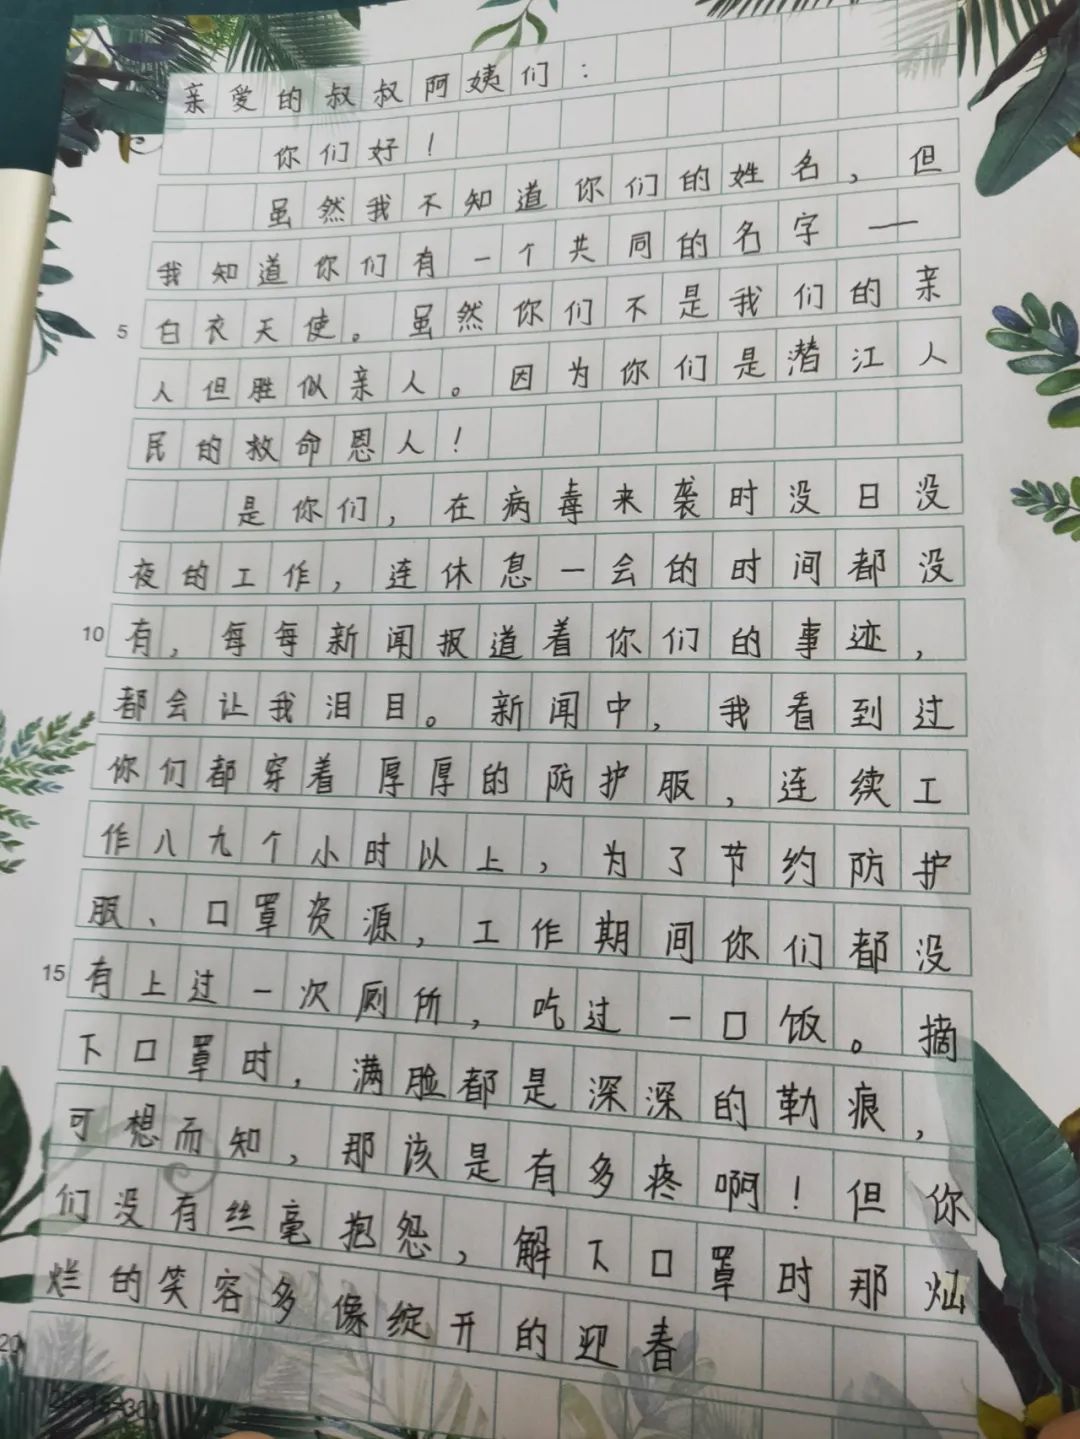 亲爱的叔叔阿姨们：
你们好！
虽然我不知道你们的姓名，但
我知道你们有一个共同的名字——
5 白衣天使。虽然你们不是我们的亲
人但胜似亲人。因为你们是潜江人
民的救命恩人！
是你们，在病毒来袭时没日没
夜的工作，连休息一会的时间都没
10 有，每每新闻报道着你们的事迹，
都会让我泪目。新闻中，我看到过
你们都穿着厚厚的防护服，连续工
作八九个小时以上，为了节约防护
服、口罩资源，工作期间你们都没
15 有上过一次厕所，吃过一口饭。摘
下口罩时，满脸都是深深的勒痕，
可想而知，那该是有多疼啊！但你
们没有丝毫抱怨，解下口罩时那灿
烂的笑容多像绽开的迎春
20
20×15=300